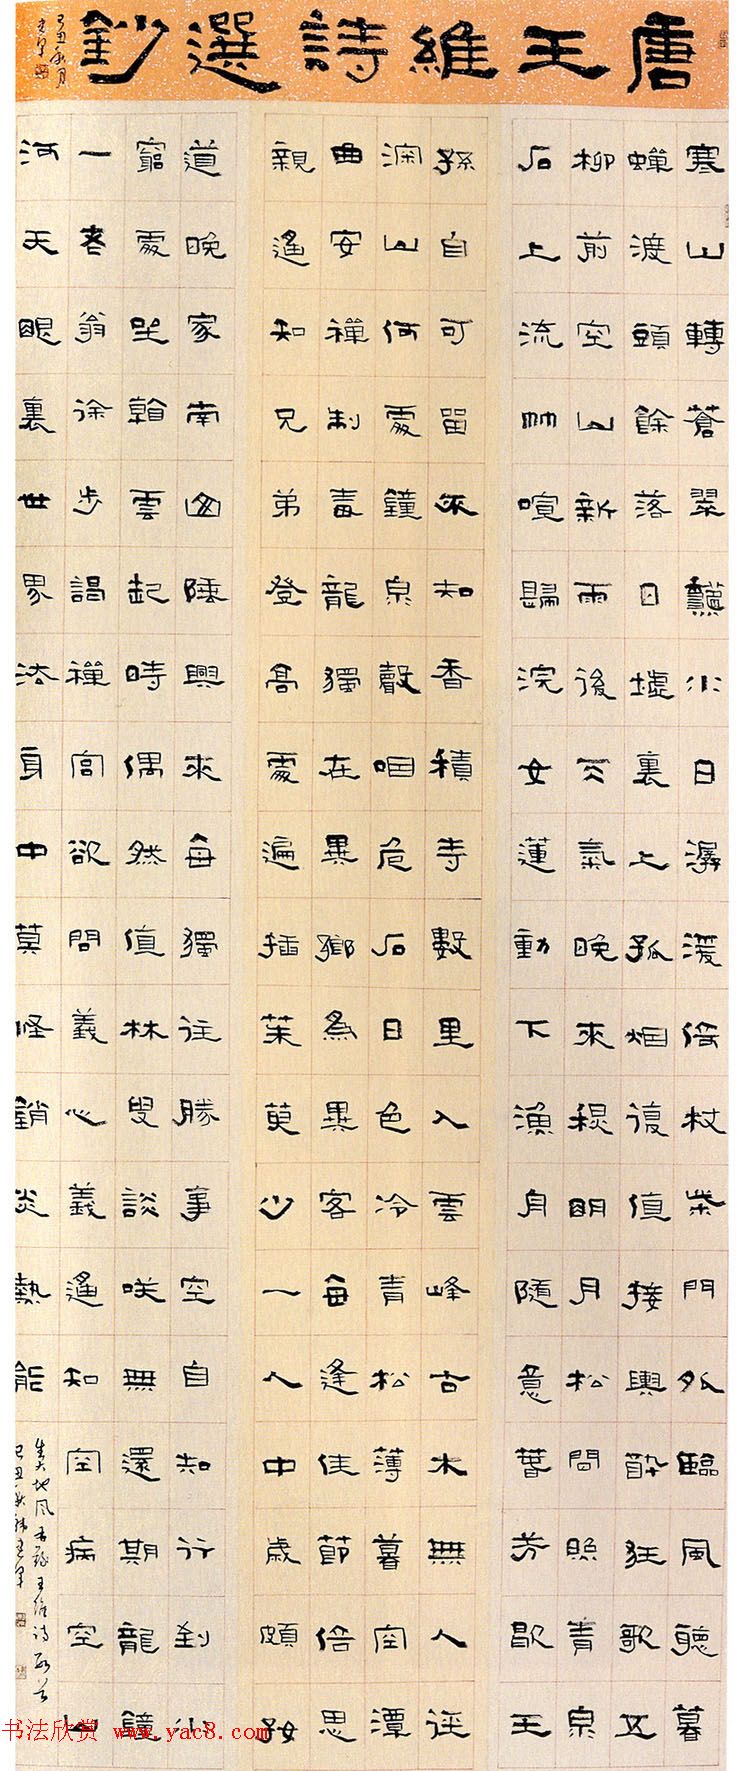 唐王維詩選鈔
己丑秋月
寒山轉蒼翠龝水日潺湲倚杖柴門外臨風聽暮
蟬渡頭餘落日墟裏上孤烟復值接輿醉狂歌五
柳前空山新雨後天氣晚來穐明月松間照青泉
石上流竹喧歸浣女蓮動下漁舟隨意春芳歇王
孫自可留不知香積寺數里入雲峰古木無人徑
深山何處鐘泉聲咽危石日色冷青松薄暮空潭
曲安禪制毒龍獨在異鄉為異客每逢佳節倍思
親遙知兄弟登高處遍插茱萸少一人中歲頗好
道晚家南山陲興來每獨往勝事空自知行到水
窮處坐看雲起時偶然值林叟談咲無還期龍鐘
一老翁徐步謁禪宮欲問義心義遙知空病空山
河天眼裏世界法身中莫怪銷炎熱能
生大地風右錄王維詩數首
己丑秋
书法欣赏 www.yac8.com